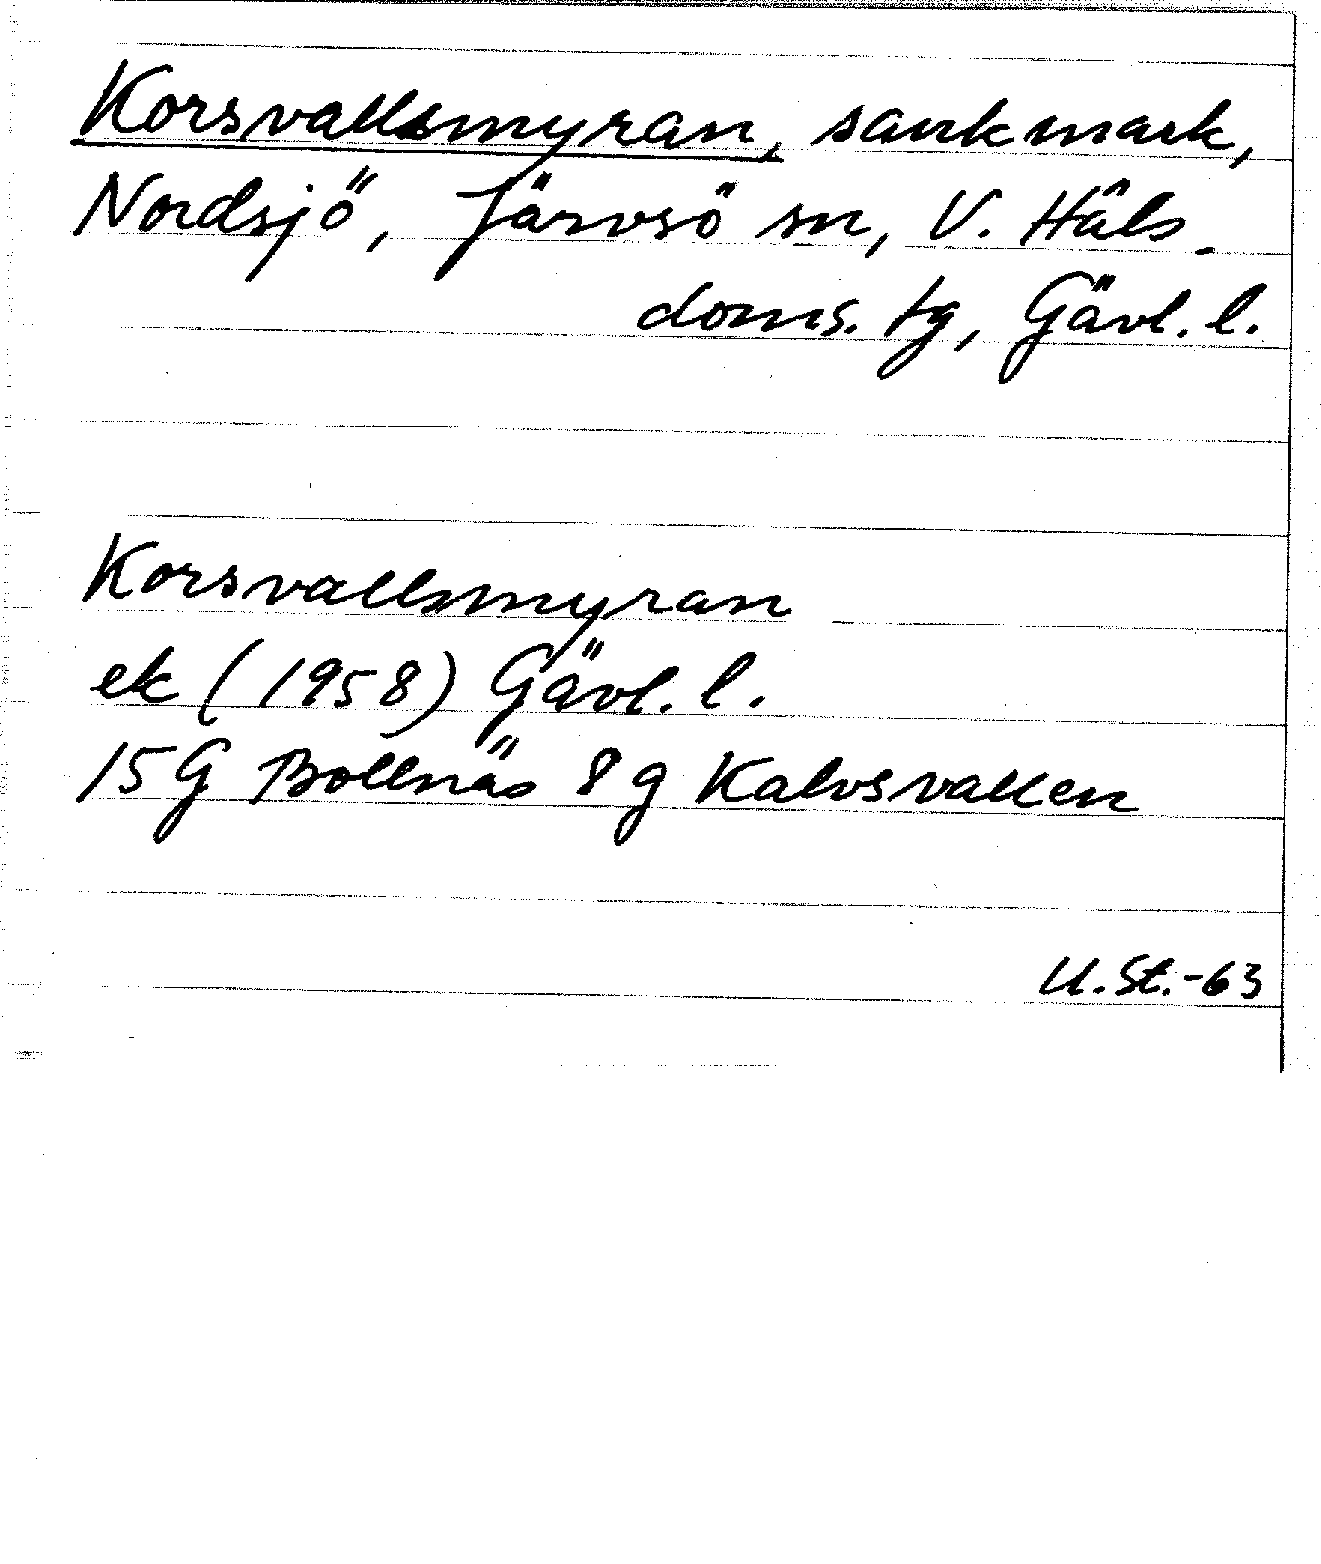 Korsvallsmyran, sankmark,
Nordsjö, Järvsö sn, V. Häls.
doms. tg, Gävl. l.
Korsvallsmyran
ek (1958) Gävl. l.
15G Bollnäs 8g Kalvsvallen
U. St.-63